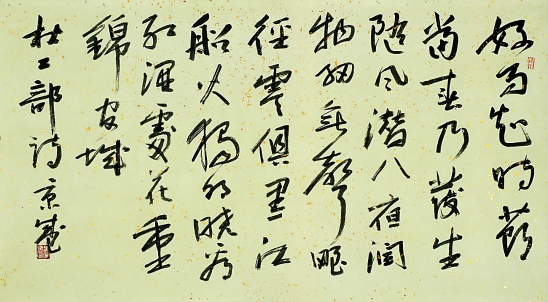 好雨知时节
当春乃发生
随风潜入夜润
物细无声野
径云俱黑江
船火独明晓看
红湿处花重
锦官城
杜工部诗京成